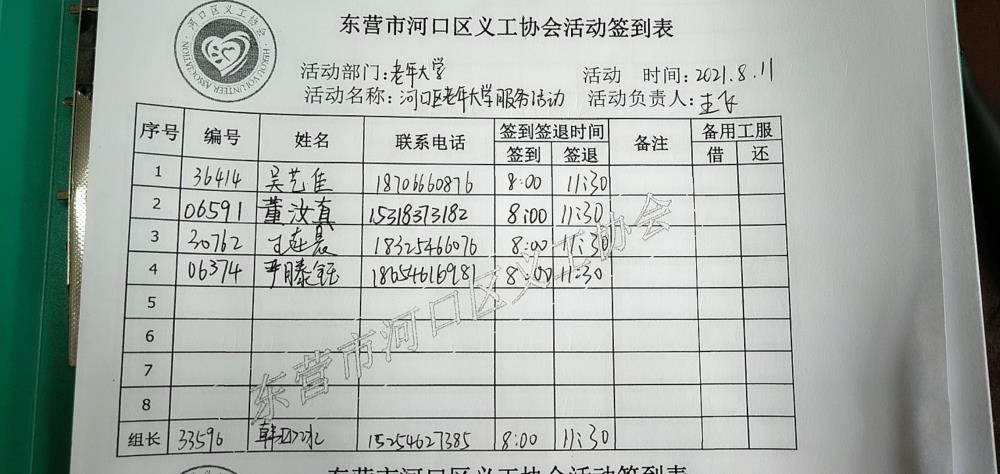 东营市河口区义工协会活动签到表
河口区义工协会
HEKOU VOLUNTEER ASSOCIATION
活动部门：老年大学 活动 时间：2021.8.11
活动名称：河口区老年大学服务活动 活动负责人：王飞
序号 编号 姓名 联系电话 签到签退时间 备注 备用工服
签到 签退 借 还
1 36414 吴艺佳 18706660876 8:00 11:30
2 06591 董汝真 15318373182 8:00 11:30
3 30762 王连晨 18325466076 8:00 11:30
4 06374 18654616981 8:00 11:30
5
6
7
8
组长 33596 韩 冰 15254627385 8:00 11:30
东营市河口区义工协会
东营市河口区义工协会活动签到表